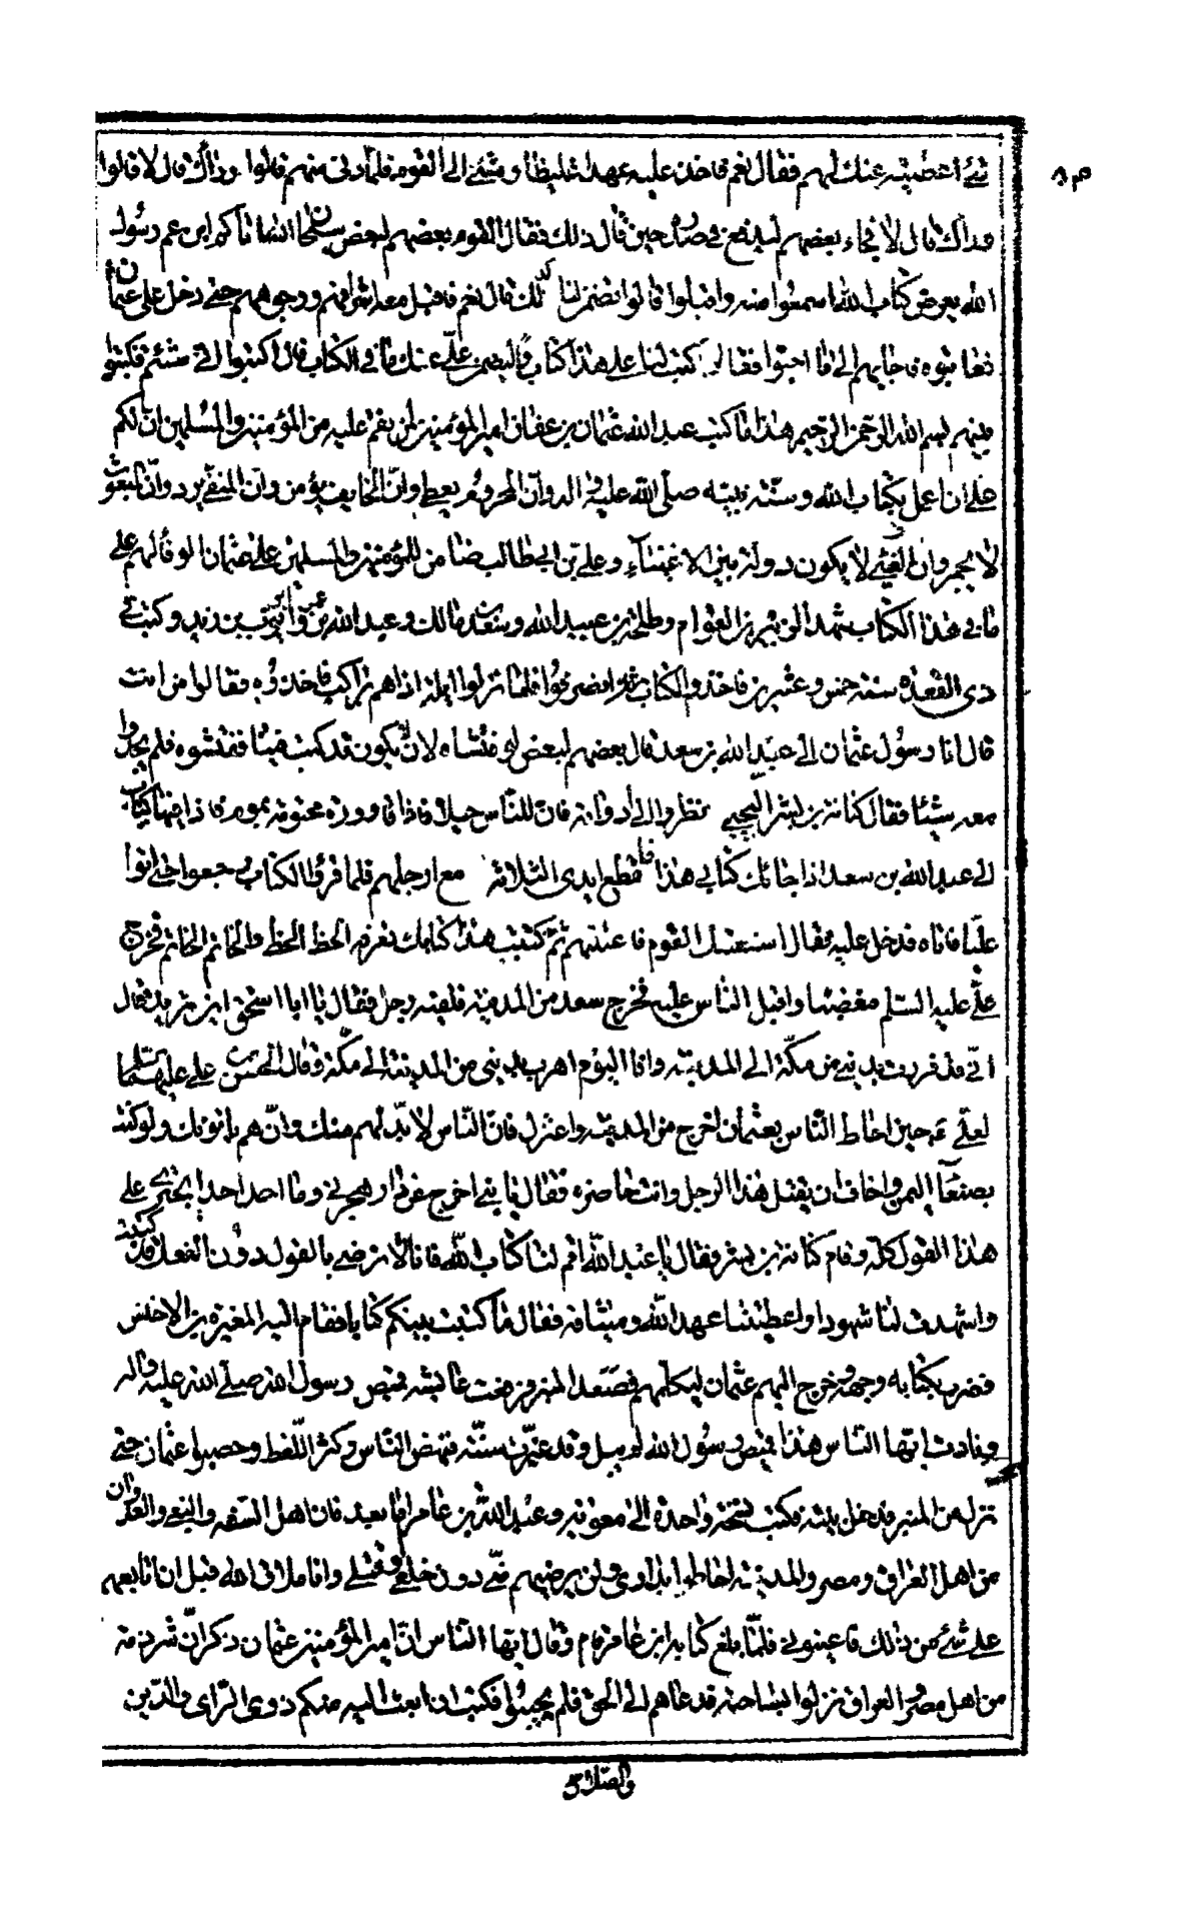 شئ اعطيته عنك لهم فقال نعم فاخذ عليه عهدا غليظا ومشى الى القوم فلما دنى منهم قالوا وراك قال لا قالوا
وراك قال لا فجاء بعضهم ليدفع في صدره حين قال ذلك فقال القوم بعضهم لبعض سبحان الله اتاكم ابن عم رسول
الله يعرض كتاب الله اسمعوا منه واقبلوا قالوا تضمن لنا كذلك قال نعم فاقبل معه اشرافهم ووجوههم حتى دخل على عثمان
فعاتبوه فاجابهم الى ما احبوا فقالوا اكتب لنا على هذا كتابا وليضمن علي عنك ما في الكتاب قال اكتبوا انى شئتم فكتبوا
بينهم بسم الله الرحمن الرحيم هذا ما كتب عبد الله عثمان بن عفان امير المؤمنين لمن نقم عليه من المؤمنين والمسلمين ان لكم
على ان اعمل بكتاب الله وسنة نبيه صلى الله عليه وآله وان المحروم يعطى وان الخايف يؤمن وان المنفي يرد وان البعوث
لا يجمر وان الفيئ لا يكون دولة بين الاغنياء وعلي بن ابي طالب ضامن للمؤمنين والمسلمين على عثمان الوفا لهم على
ما في هذا الكتاب شهد الزبير بن العوام وطلحة بن عبيد الله وسعد بن مالك وعبد الله بن عمر وابو ايوب بن زيد وكتب في
ذي القعدة سنة خمس وعشرين فاخذوا الكتاب ثم انصرفوا فلما نزلوا ايلة اذا هم براكب فاخذوه فقالوا من انت
قال انا رسول عثمان الى عبد الله بن سعد قال بعضهم لبعض لو فتشناه لان لا يكون قد كتب فينا ففتشوه فلم يجدوا
معه شيئا فقال كنانة بن بشر التجيبي انظروا الى ادواته فان للناس حيلا فاذا قارورة مختومة بموم فاذا فيها كتاب
الى عبد الله بن سعد اذا جائك كتابي هذا فاقطع ايدي الثلاثة مع ارجلهم فلما قرؤا الكتاب رجعوا حتى اتوا
عليا فاتاه فدخل عليه فقال استعتبك القوم فاعتبتهم ثم كتبت هذا كتابك نعرفه الخط الخط والخاتم الخاتم فخرج
علي عليه السلم مغضبا واقبل الناس عليه فخرج سعد من المدينة فلقيه رجل فقال يا ابا اسحق اين تريد قال
اني قد فررت بديني من مكة الى المدينة وانا اليوم اهرب بديني من المدينة الى مكة وقال الحسن بن علي عليهما السلم
لعلي ع حين احاط الناس بعثمان اخرج من المدينة واعتزل فان الناس لا بد لهم منك وانهم ياتونك ولو كنت
بصنعا اليمن واخاف ان يقتل هذا الرجل وانت حاضره فقال يا بني اخرج عن دار هجرتي وما احد احدا يجتري على
هذا القول كله وقام كنانة بن بشر فقال يا عبد الله اقم لنا كتاب الله فانا لا نرضى بالقول دون الفعل قد كتبت
واشهدت لنا شهودا واعطيتنا عهد الله وميثاقه فقال ما كتبت بينكم كتابا فقام اليه المغيرة بن الاخنس
فضرب بكتابه وجهه وخرج اليهم عثمان ليكلمهم فصعد المنبر فرفعت عايشة قميص رسول الله صلى الله عليه وآله
ونادت ايها الناس هذا قميص رسول الله لم يبل وقد غيرت سنته فنهض الناس وكثر اللغط وحصبوا عثمان حتى
نزل من المنبر فدخل بيته فكتب نسخة واحدة الى معوية وعبد الله بن عامر اما بعد فان اهل السفه والبغي والعدوان
من اهل العراق ومصر والمدينة احاطوا بداري ولن يرضيهم مني دون خلعي وقتلي وانا ملاقي الله قبل ان اتابعهم
على شئ من ذلك فاعينوني فلما بلغ كتابه ابن عامر قام وقال ايها الناس ان امير المؤمنين عثمان ذكر ان شرذمة
من اهل مصر والعراق نزلوا بساحته فدعاهم الى الحق فلم يجيبوا فكتب ان ابعث اليه منكم ذوي الراي والدين
والصلاح